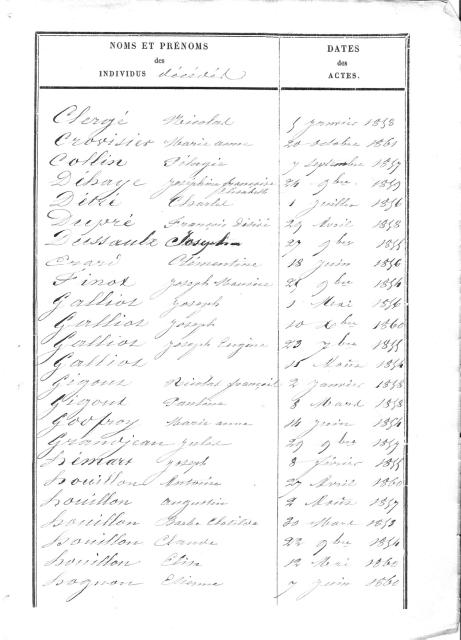 NOMS ET PRÉNOMS
des
INDIVIDUS décédés
DATES
des
ACTES.
Clergé Nicolas 5 Janvier 1858
Crovisier Marie anne 20 octobre 1861
Collin Pélagie 7 septembre 1857
Déhaye Joséphine françoise Elisabeth 24 9bre 1859
Charles 1 Juillet 1856
Dupré François Désiré 29 Avril 1858
Dussaulx Joseph 27 9bre 1855
Erard Clémentine 18 Juin 1856
Finot Joseph 9bre 1854
Galliot Joseph 1 Mai 1858
Galliot Joseph 10 Xbre 1860
Galliot Joseph Eugène 23 7bre 1855
Galliot 15 Août 1854
Gigout Nicolas françois 2 Janvier 1858
Gigout Pauline 8 Mars 1858
Godfroy Marie anne 14 Juin 1854
Grandjean Jules 29 9bre 1857
Joseph 8 février 1855
houillon Antoine 27 Avril 1860
houillon augustin 2 Août 1857
houillon Barbe Clotilde 30 Mars 1853
houillon Claude 22 9bre 1854
houillon 12 Mai 1860
hognon Etienne 7 Juin 1860